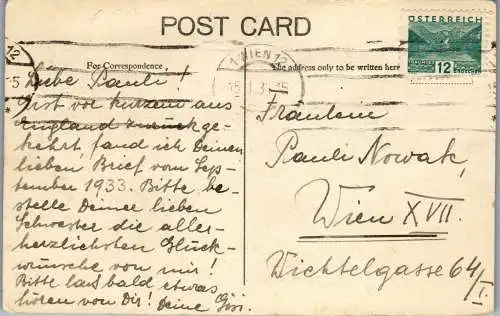 POST CARD
For Correspondence
The address only to be written here
ÖSTERREICH
12
GROSCHEN
1 WIEN 12
12
5
Liebe Pauli!
Erst vor kurzem aus
England zurückge-
kehrt, fand ich Deinen
lieben Brief vom Sep-
tember 1933. Bitte be-
stelle Deiner lieben
Schwester die aller-
herzlichsten Glück-
wünsche von mir!
Bitte laß bald etwas
hören von Dir! Deine Gisi.
Fräulein
Pauli Nowak,
Wien XVII.
Wichtelgasse 64/I.